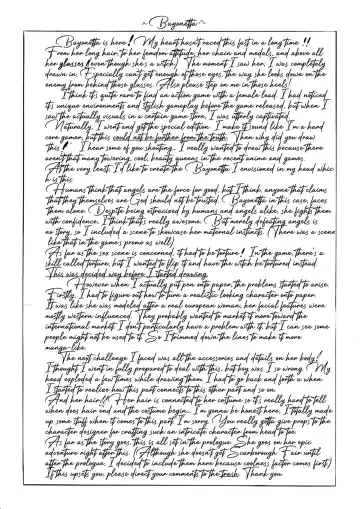 ~ Bayonetta ~
Bayonetta is here! (My heart hasn't raced this fast in a long time!!
From her long hair, to her femdom attitude, her chain and medals, and above all
her glasses (even though she's a witch). The moment I saw her, I was completely
drawn in. Especially can't get enough of those eyes, the way she looks down on the
enemy from behind those glasses. (Also please step on me in those heels)
I think it's quite rare to find an action game with a female lead. I had noticed
it's unique environments and stylish gameplay before the game released, but when I
saw the actually visuals in a certain game store, I was utterly captivated.
Naturally, I went and got the special edition. I make it sound like I'm a hard
core gamer, but this could not be further from the truth. Then why did you draw
this!? I hear some of you shouting. I really wanted to draw this because there
aren't that many towering, cool, beauty queens in the recent anime and games.
At the very least, I'd like to create the Bayonetta I envisioned in my head whic
h is this:
Humans think that angels are the force for good, but I think, anyone that claims
that they themselves are God should not be trusted. Bayonetta in this case, faces
them alone. Despite being ostracized by humans and angels alike, she fights them
with confidence. I think that's really awesome. But merely defeating angels is
no story, so I included a scene to showcase her maternal instincts. (There was a scene
like that in the game's promo as well)
As far as the sex scene is concerned, it had to be torture! In the game, there's a
skill called torture, but I wanted to flip it and have the witch be tortured instead.
This was decided way before I started drawing.
However when I actually put pen onto paper, the problems started to arise.
Firstly, I had to figure out how to turn a realistic looking character onto paper.
It was like she was modeled after a real european woman, her facial features were
mostly western influenced. They probably wanted to market it more toward the
international market. I don't particularly have a problem with it, but I can see some
people might not be used to it. So I trimmed down the lines to make it more
manga-like.
The next challenge I faced was all the accessories and details on her body!
I thought I went in fully prepared to deal with this, but boy was I so wrong. My
head exploded a few times while drawing them. I had to go back and forth a when
I started to realize how this part connects to this other part and so on.
And her hair!! Her hair is connected to her costume so it's really hard to tell
when does hair end and the costume begin... I'm gonna be honest here, I totally made
up some stuff when it comes to this part. I'm sorry. You really gotta give props to the
character designer for crafting such an intricate character from head to toe.
As far as the story goes, this is all set in the prologue. She goes on her epic
adventure right after this. (Although she doesn't get Scarborough Fair until
after the prologue, I decided to include them here because coolness factor comes first)
If this upsets you, please direct your comments to the trash. Thank you.